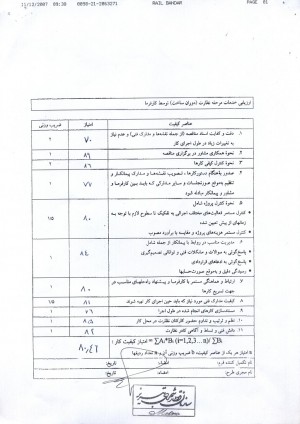 11/12/2007 03:38 0098-21-2063271 RAIL BANDAR PAGE 01
ارزیابی خدمات مرحله نظارت (دوران ساخت) توسط کارفرما
عناصر کیفیت امتیاز ضریب وزنی
۱. دقت و کفایت اسناد مناقصه (از جمله نقشه‌ها و مدارک فنی) و عدم نیاز به تغییرات زیاد در طول اجرای کار ۷۰ ۲
۲. نحوه همکاری مشاور در برگزاری مناقصه ۸۶ ۱
۳. نحوه کنترل کیفی کارها ۸۶
۴. صدور باهنگام دستورکارها، تصویب نقشه‌ها و مدارک پیمانکار و تنظیم به‌موقع صورتجلسات و سایر مدارکی که باید بین کارفرما و مشاور و پیمانکار مبادله شود ۱
۵. نحوه کنترل پروژه شامل
• کنترل مستمر فعالیت‌های مختلف اجرایی به تفکیک تا سطوح لازم با توجه به زمانهای از پیش تعیین شده
• کنترل مستمر هزینه‌های پروژه و مقایسه با برآورد مصوب
۸۰ ۱/۵
۶. مدیریت مناسب در روابط با پیمانکار از جمله شامل
• پاسخ‌گوئی به سوالات و مشکلات فنی و توانائی تصمیم‌گیری
• پاسخ گوئی به ادعاهای قراردادی
• رسیدگی دقیق و به‌موقع صورت‌حسابها
۸۴ ۱
۷. ارتباط و هماهنگی مستمر با کارفرما و پیشنهاد راه‌حلهای مناسب در جهت تسریع کارها ۸۰ ۱
۸. کیفیت مدارک فنی مورد نیاز که باید حین اجرای کار تهیه شوند. ۸۱ ۱/۵
۹. مستندسازی کارهای انجام شده در طول اجرا ۷۶ ۱
۱۰. نظم و ترتیب و تداوم حضور کارکنان نظارت در محل کار ۱
۱۱. دانش فنی و تسلط و آگاهی کادر نظارت ۸۶ ۱
امتیاز کیفیت کار: = ∑Ai*Bi (i=1,2,3...n)/ ∑Bi
Ai امتیاز هر یک از عناصر کیفیت، Bi ضریب وزنی آنان و n تعداد ردیفها
نام تکمیل کننده فرم: امضاء: تاریخ:
نام مجری طرح: امضاء: تاریخ: